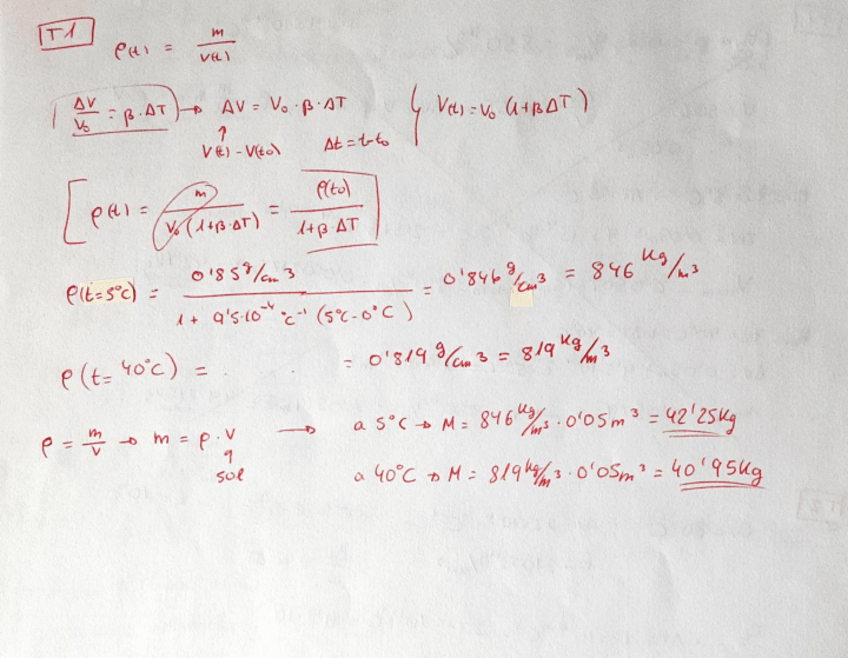 T1
ρ(t) = m/V(t)
ΔV/V₀ = β·ΔT → ΔV = V₀·β·ΔT { V(t) = V₀ (1+βΔT)
↑
V(t) - V(t₀) Δt = t-t₀
[ ρ(t) = m/(V₀(1+β·ΔT)) = ρ(t₀)/(1+β·ΔT) ]
ρ(t=5°C) = 0'85 g/cm3 / (1 + 9'5·10⁻⁴ °C⁻¹ (5°C-0°C)) = 0'846 g/cm3 = 846 Kg/m3
ρ(t= 40°C) = . . . = 0'819 g/cm3 = 819 Kg/m3
ρ = m/V → m = ρ·V → a 5°C → M = 846 Kg/m3 · 0'05 m3 = 42'25 Kg
↑
50l a 40°C → M = 819 Kg/m3 · 0'05 m3 = 40'95 Kg